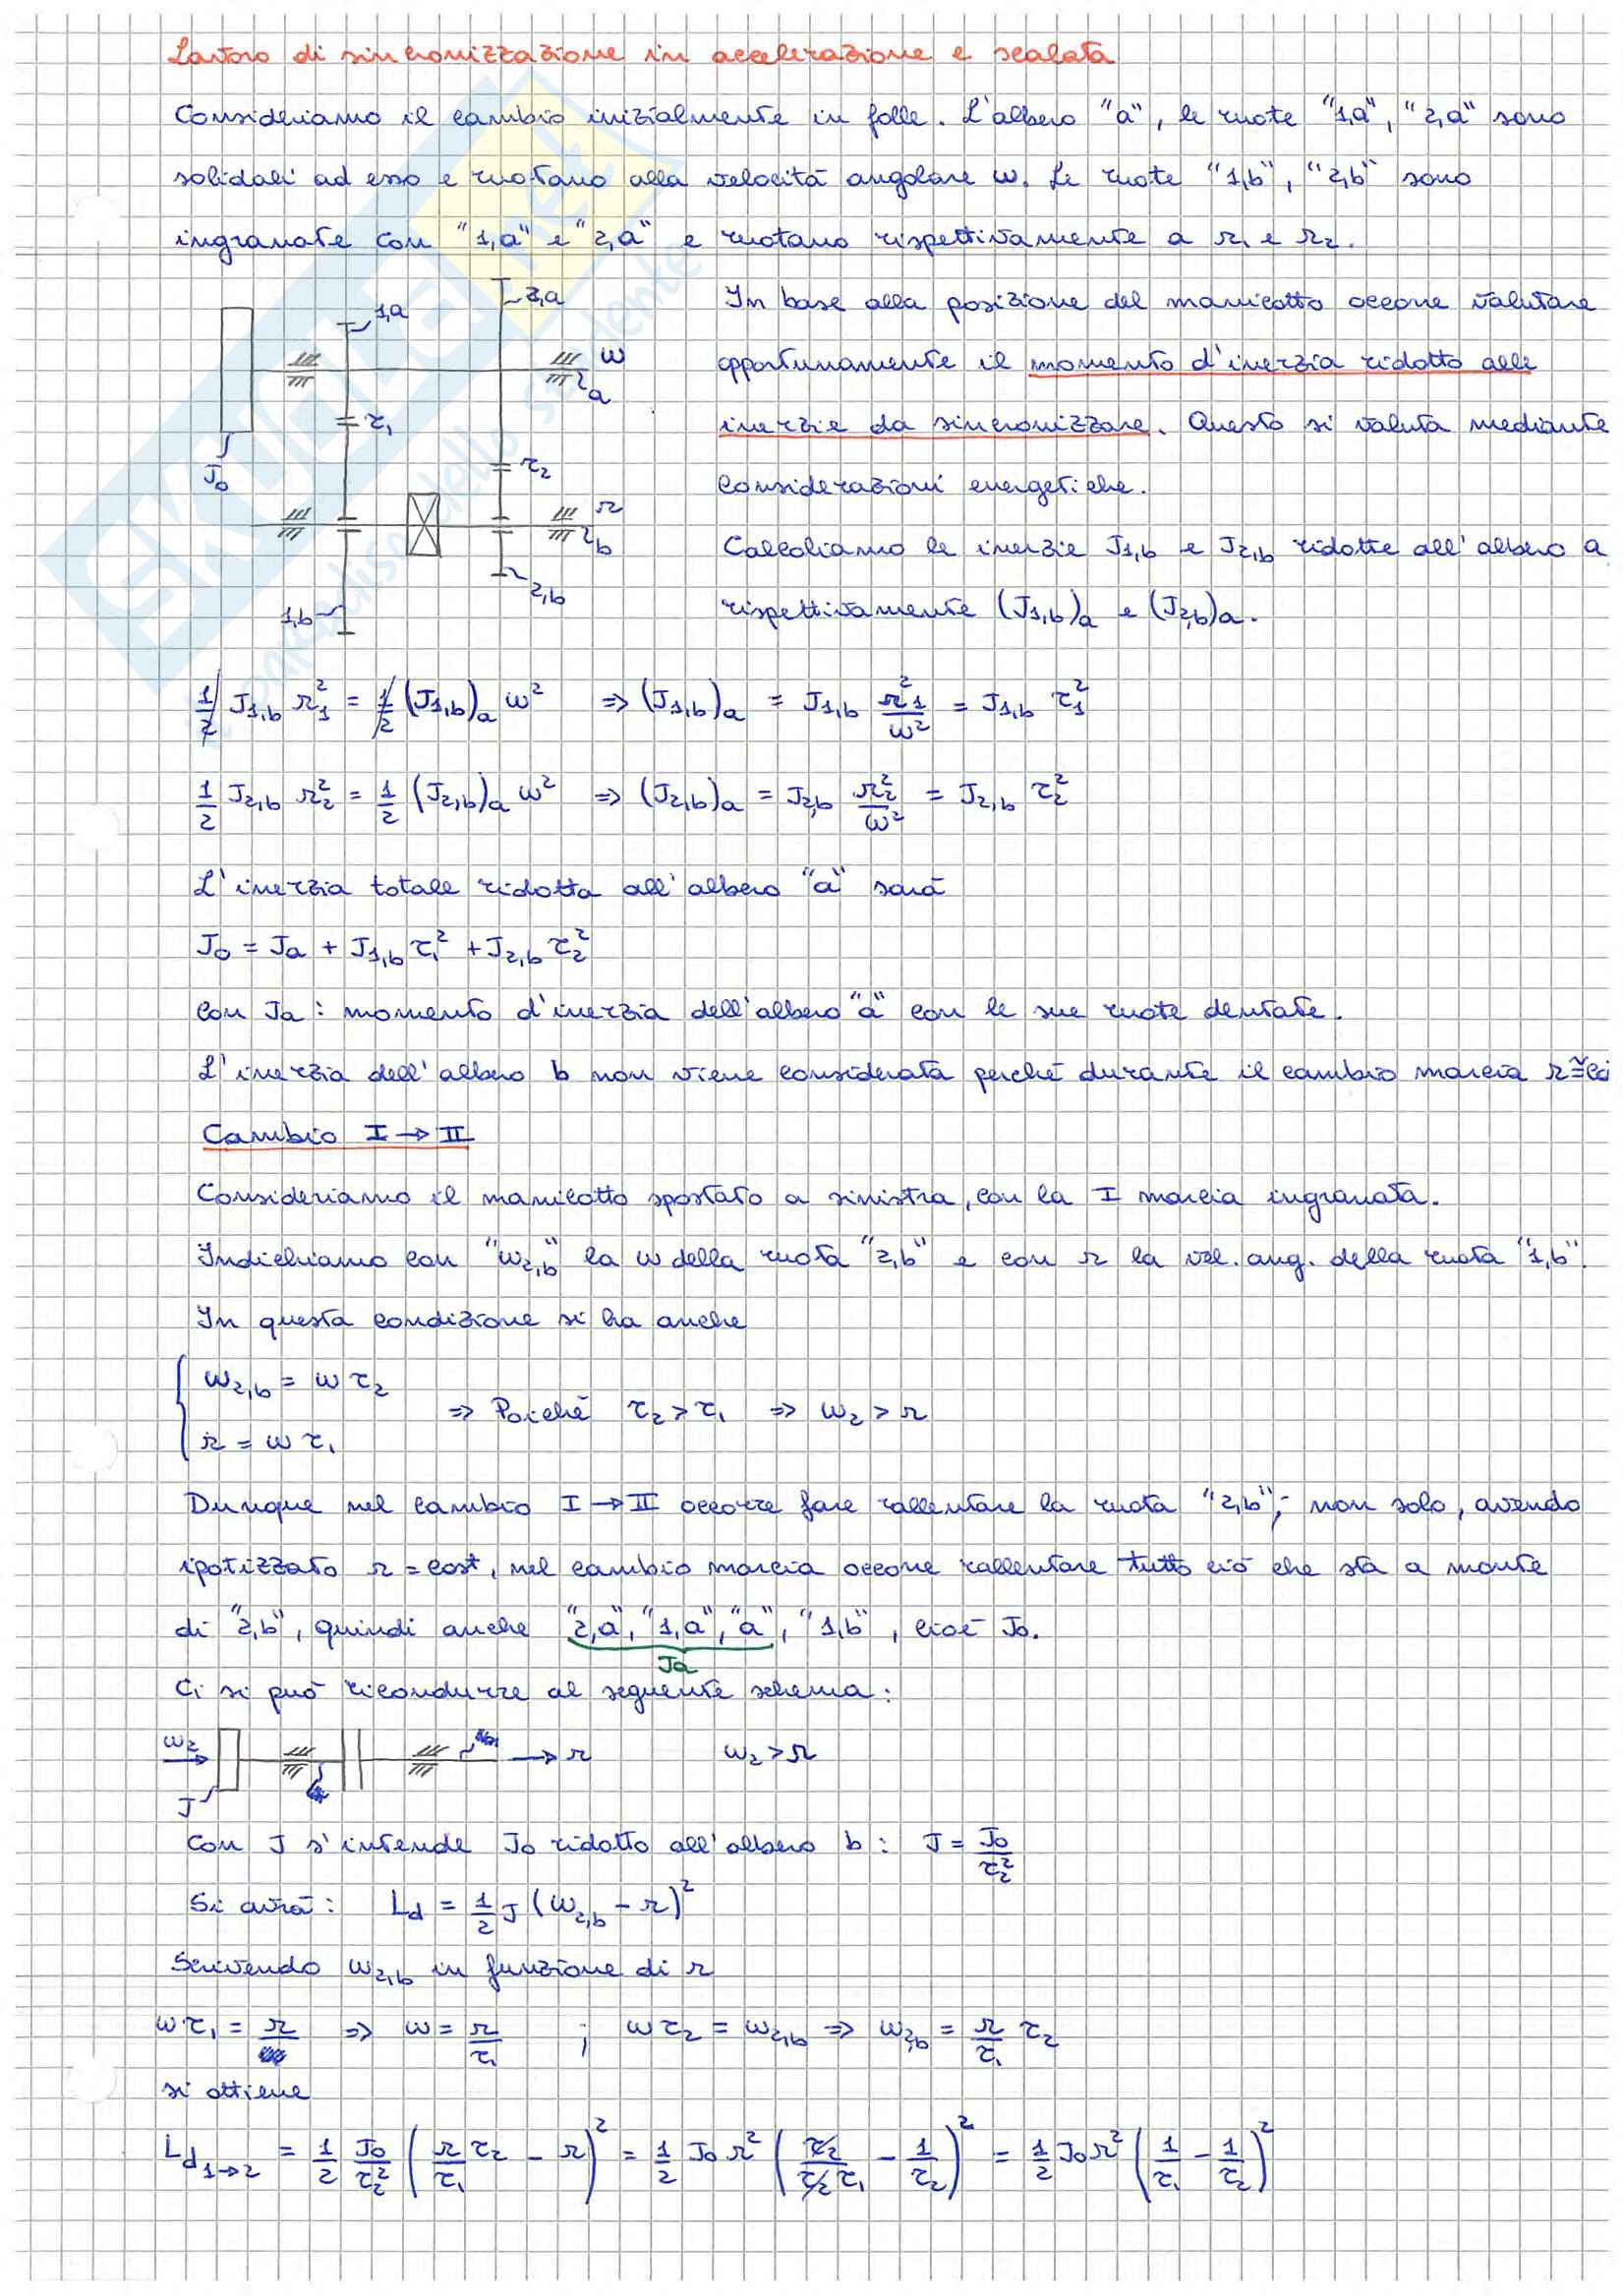 Lavoro di sincronizzazione in accelerazione e scalata
Consideriamo il cambio inizialmente in folle. L'albero "a", le ruote "1,a", "2,a" sono
solidali ad esso e ruotano alla velocità angolare ω. Le ruote "1,b", "2,b" sono
ingranate con "1,a" e "2,a" e ruotano rispettivamente a Ω₁ e Ω₂.
In base alla posizione del manicotto occorre valutare
opportunamente il momento d'inerzia ridotto alle
inerzie da sincronizzare. Questo si valuta mediante
considerazioni energetiche.
Calcoliamo le inerzie J1,b e J2,b ridotte all'albero a
rispettivamente (J1,b)a e (J2,b)a.
1,a
2,a
ω
a
τ₁
J₀
τ₂
Ω
b
2,b
1,b
1/2 J1,b Ω₁² = 1/2 (J1,b)a ω² ⇒ (J1,b)a = J1,b Ω₁²/ω² = J1,b τ₁²
1/2 J2,b Ω₂² = 1/2 (J2,b)a ω² ⇒ (J2,b)a = J2,b Ω₂²/ω² = J2,b τ₂²
L'inerzia totale ridotta all'albero "a" sarà
J₀ = Ja + J1,b τ₁² + J2,b τ₂²
con Ja : momento d'inerzia dell'albero "a" con le sue ruote dentate.
L'inerzia dell'albero b non viene considerata perché durante il cambio marcia Ω ≅ co
Cambio I → II
Consideriamo il manicotto spostato a sinistra, con la I marcia ingranata.
Indichiamo con "ω2,b" la ω della ruota "2,b" e con Ω la vel. ang. della ruota "1,b".
In questa condizione si ha anche
ω2,b = ω τ₂
⇒ Poiché τ₂ > τ₁ ⇒ ω₂ > Ω
Ω = ω τ₁
Dunque nel cambio I → II occorre fare rallentare la ruota "2,b"; non solo, avendo
ipotizzato Ω = cost, nel cambio marcia occorre rallentare tutto ciò che sta a monte
di "2,b", quindi anche "2,a", "1,a", "a", "1,b", cioè J₀.
Ja
Ci si può ricondurre al seguente schema:
ω₂
Ω
ω₂ > Ω
J
Con J s'intende J₀ ridotto all'albero b : J = J₀/τ₂²
Si avrà : Ld = 1/2 J (ω2,b − Ω)²
Scrivendo ω2,b in funzione di Ω
ω τ₁ = Ω ⇒ ω = Ω/τ₁ ; ω τ₂ = ω2,b ⇒ ω2,b = Ω/τ₁ τ₂
si ottiene
Ld1→2 = 1/2 J₀/τ₂² (Ω/τ₁ τ₂ − Ω)² = 1/2 J₀ Ω² (τ₂/τ₂ τ₁ − 1/τ₂)² = 1/2 J₀ Ω² (1/τ₁ − 1/τ₂)²